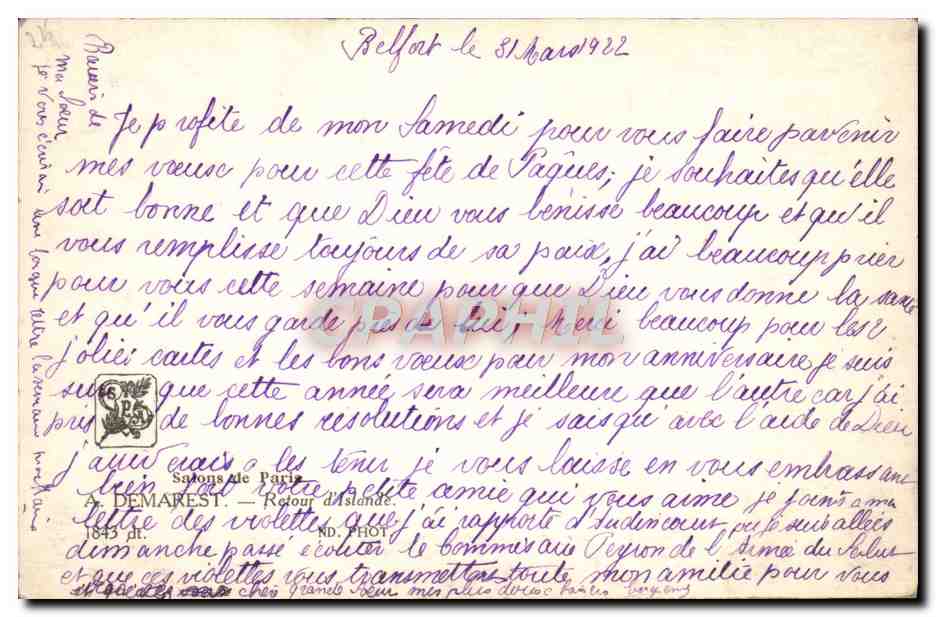 Belfort le 31 Mars 1922
Je profite de mon Samedi pour vous faire parvenir
mes vœux pour cette fête de Pâques, je souhaites qu'elle
soit bonne et que Dieu vous bénisse beaucoup et qu'il
vous remplisse toujours de sa paix, j'ai beaucoup prier
pour vous cette semaine pour que Dieu vous donne la santé
et qu'il vous garde près de lui; Merci beaucoup pour les 2
jolies cartes et les bons vœux pour mon anniversaire, je suis
sur que cette année sera meilleure que l'autre car j'ai
pris de bonnes résolutions et je sais qu'avec l'aide de Dieu
j'arriverais a les tenir je vous laisse en vous embrassant
bien fort votre petite amie qui vous aime je joins a ma
lettre des violettes que j'ai rapporté d' ou je suis allées
dimanche passé écouter le Commissaire Peyron de l'Armée du Salut
et que ces violettes vous transmettent toute mon amitié pour vous
chère grande Sœur mes plus doux baisers
Baisers de
ma Sœur
je vous écrirai une longue lettre la semaine prochaine
CPAPHIL
SPA
Salons de Paris
A. DEMAREST. — Retour d'Islande.
1843 dt. ND. PHOT